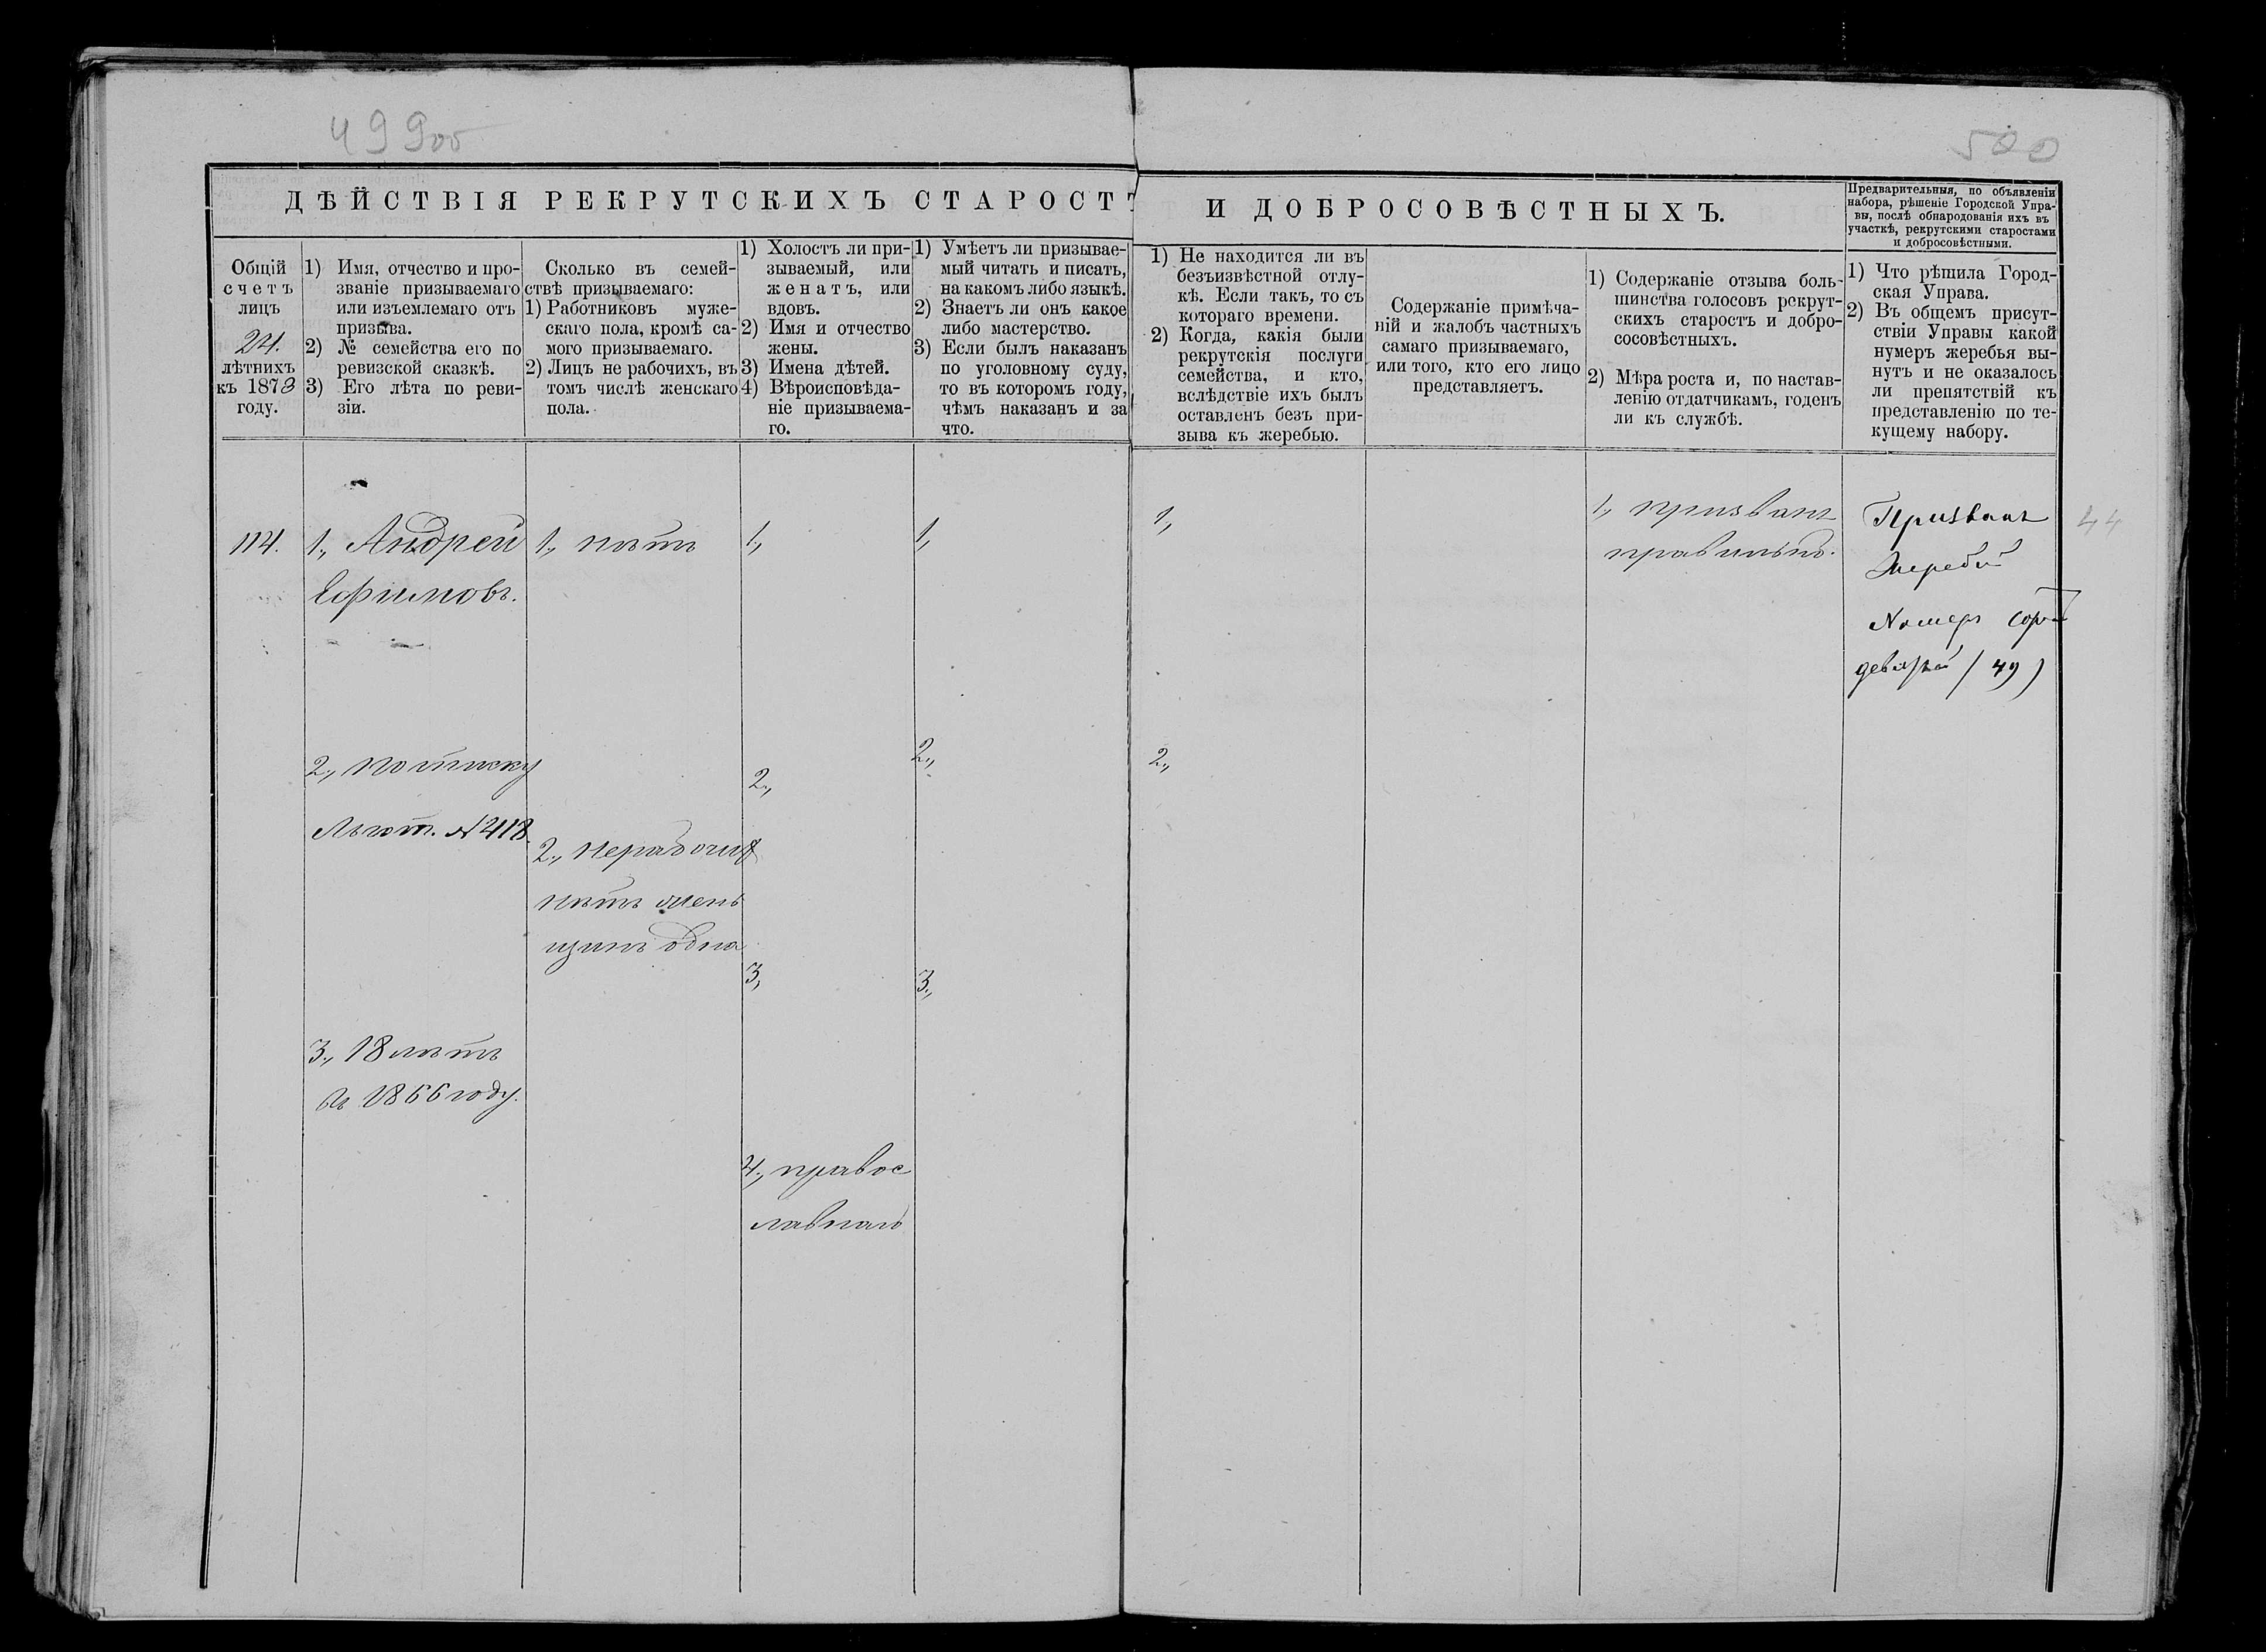 500
ДѢЙСТВІЯ РЕКРУТСКИХЪ СТАРОСТЪ
И ДОБРОСОВѢСТНЫХЪ.
Общій
счетъ
лицъ
21.
лѣтнихъ
къ 1873
году.
1) Имя, отчество и про-
званіе призываемаго
или изъемлемаго отъ
призыва.
2) № семейства его по
ревизской сказкѣ.
3) Его лѣта по реви-
зіи.
Сколько въ семей-
ствѣ призываемаго:
1) Работниковъ муже-
скаго пола, кромѣ са-
мого призываемаго.
2) Лицъ не рабочихъ, въ
томъ числѣ женскаго
пола.
1) Холостъ ли при-
зываемый, или
женатъ, или
вдовъ.
2) Имя и отчество
жены.
3) Имена дѣтей.
4) Вѣроисповѣда-
ніе призываема-
го.
1) Умѣетъ ли призывае-
мый читать и писать,
на какомъ либо языкѣ.
2) Знаетъ ли онъ какое
либо мастерство.
3) Если былъ наказанъ
по уголовному суду,
то въ которомъ году,
чѣмъ наказанъ и за
что.
1) Не находится ли въ
безъизвѣстной отлу-
кѣ. Если такъ, то съ
котораго времени.
2) Когда, какія были
рекрутскія послуги
семейства, и кто,
вслѣдствіе ихъ былъ
оставленъ безъ при-
зыва къ жеребью.
Содержаніе примѣча-
ній и жалобъ частныхъ
самаго призываемаго,
или того, кто его лицо
представляетъ.
1) Содержаніе отзыва боль-
шинства голосовъ рекрут-
скихъ старостъ и добро-
сосовѣстныхъ.
2) Мѣра роста и, по настав-
ленію отдатчикамъ, годенъ
ли къ службѣ.
Предварительныя, по объявленіи
набора, рѣшеніе Городской Упра-
вы, послѣ обнародованія ихъ въ
участкѣ, рекрутскими старостами
и добросовѣстными.
1) Что рѣшила Город-
ская Управа.
2) Въ общемъ присут-
ствіи Управы какой
нумеръ жеребья вы-
нутъ и не оказалось
ли препятствій къ
представленію по те-
кущему набору.
114.
1., Андрей
Ефимовъ.
2., по списку
льгот. № 418
3., 18 лѣтъ
въ 1866 году.
1., нѣтъ
2., нерабочих
нѣтъ жень
щинъ одна
1,
2.,
3,
4., правос
лавнаго
1,
2.,
3.,
1,
2.,
1., призванъ
правильно.
Призванъ
Жеребій
Номеръ сорок
девятый (49)
44